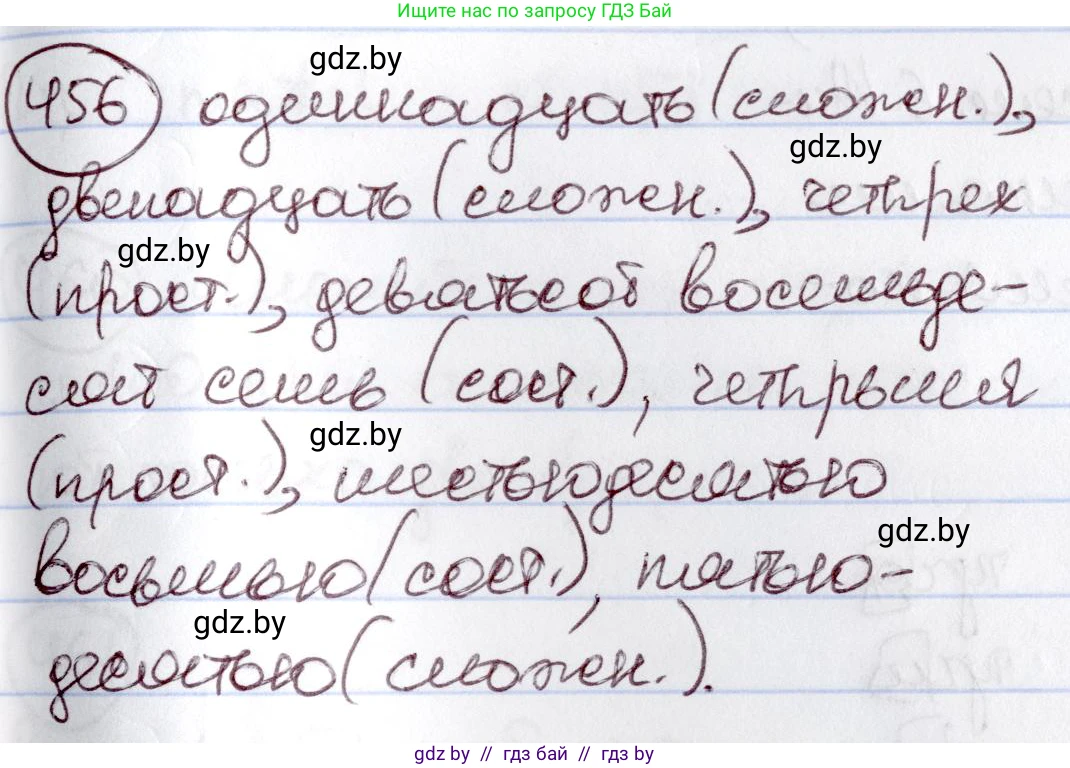 Ищите нас по запросу ГДЗ Бай
gdz.by
456 одиннадцать (сложен.),
gdz.by
двенадцать (сложен.), четырех
gdz.by
(прост.), девятьсот восемьде-
сят семь (сост.), четырьмя
gdz.by
(прост.), шестьюдесятью
gdz.by
восьмью (сост.), пятью-
gdz.by
десятью (сложен.).
gdz by // гдз бай // гдз by